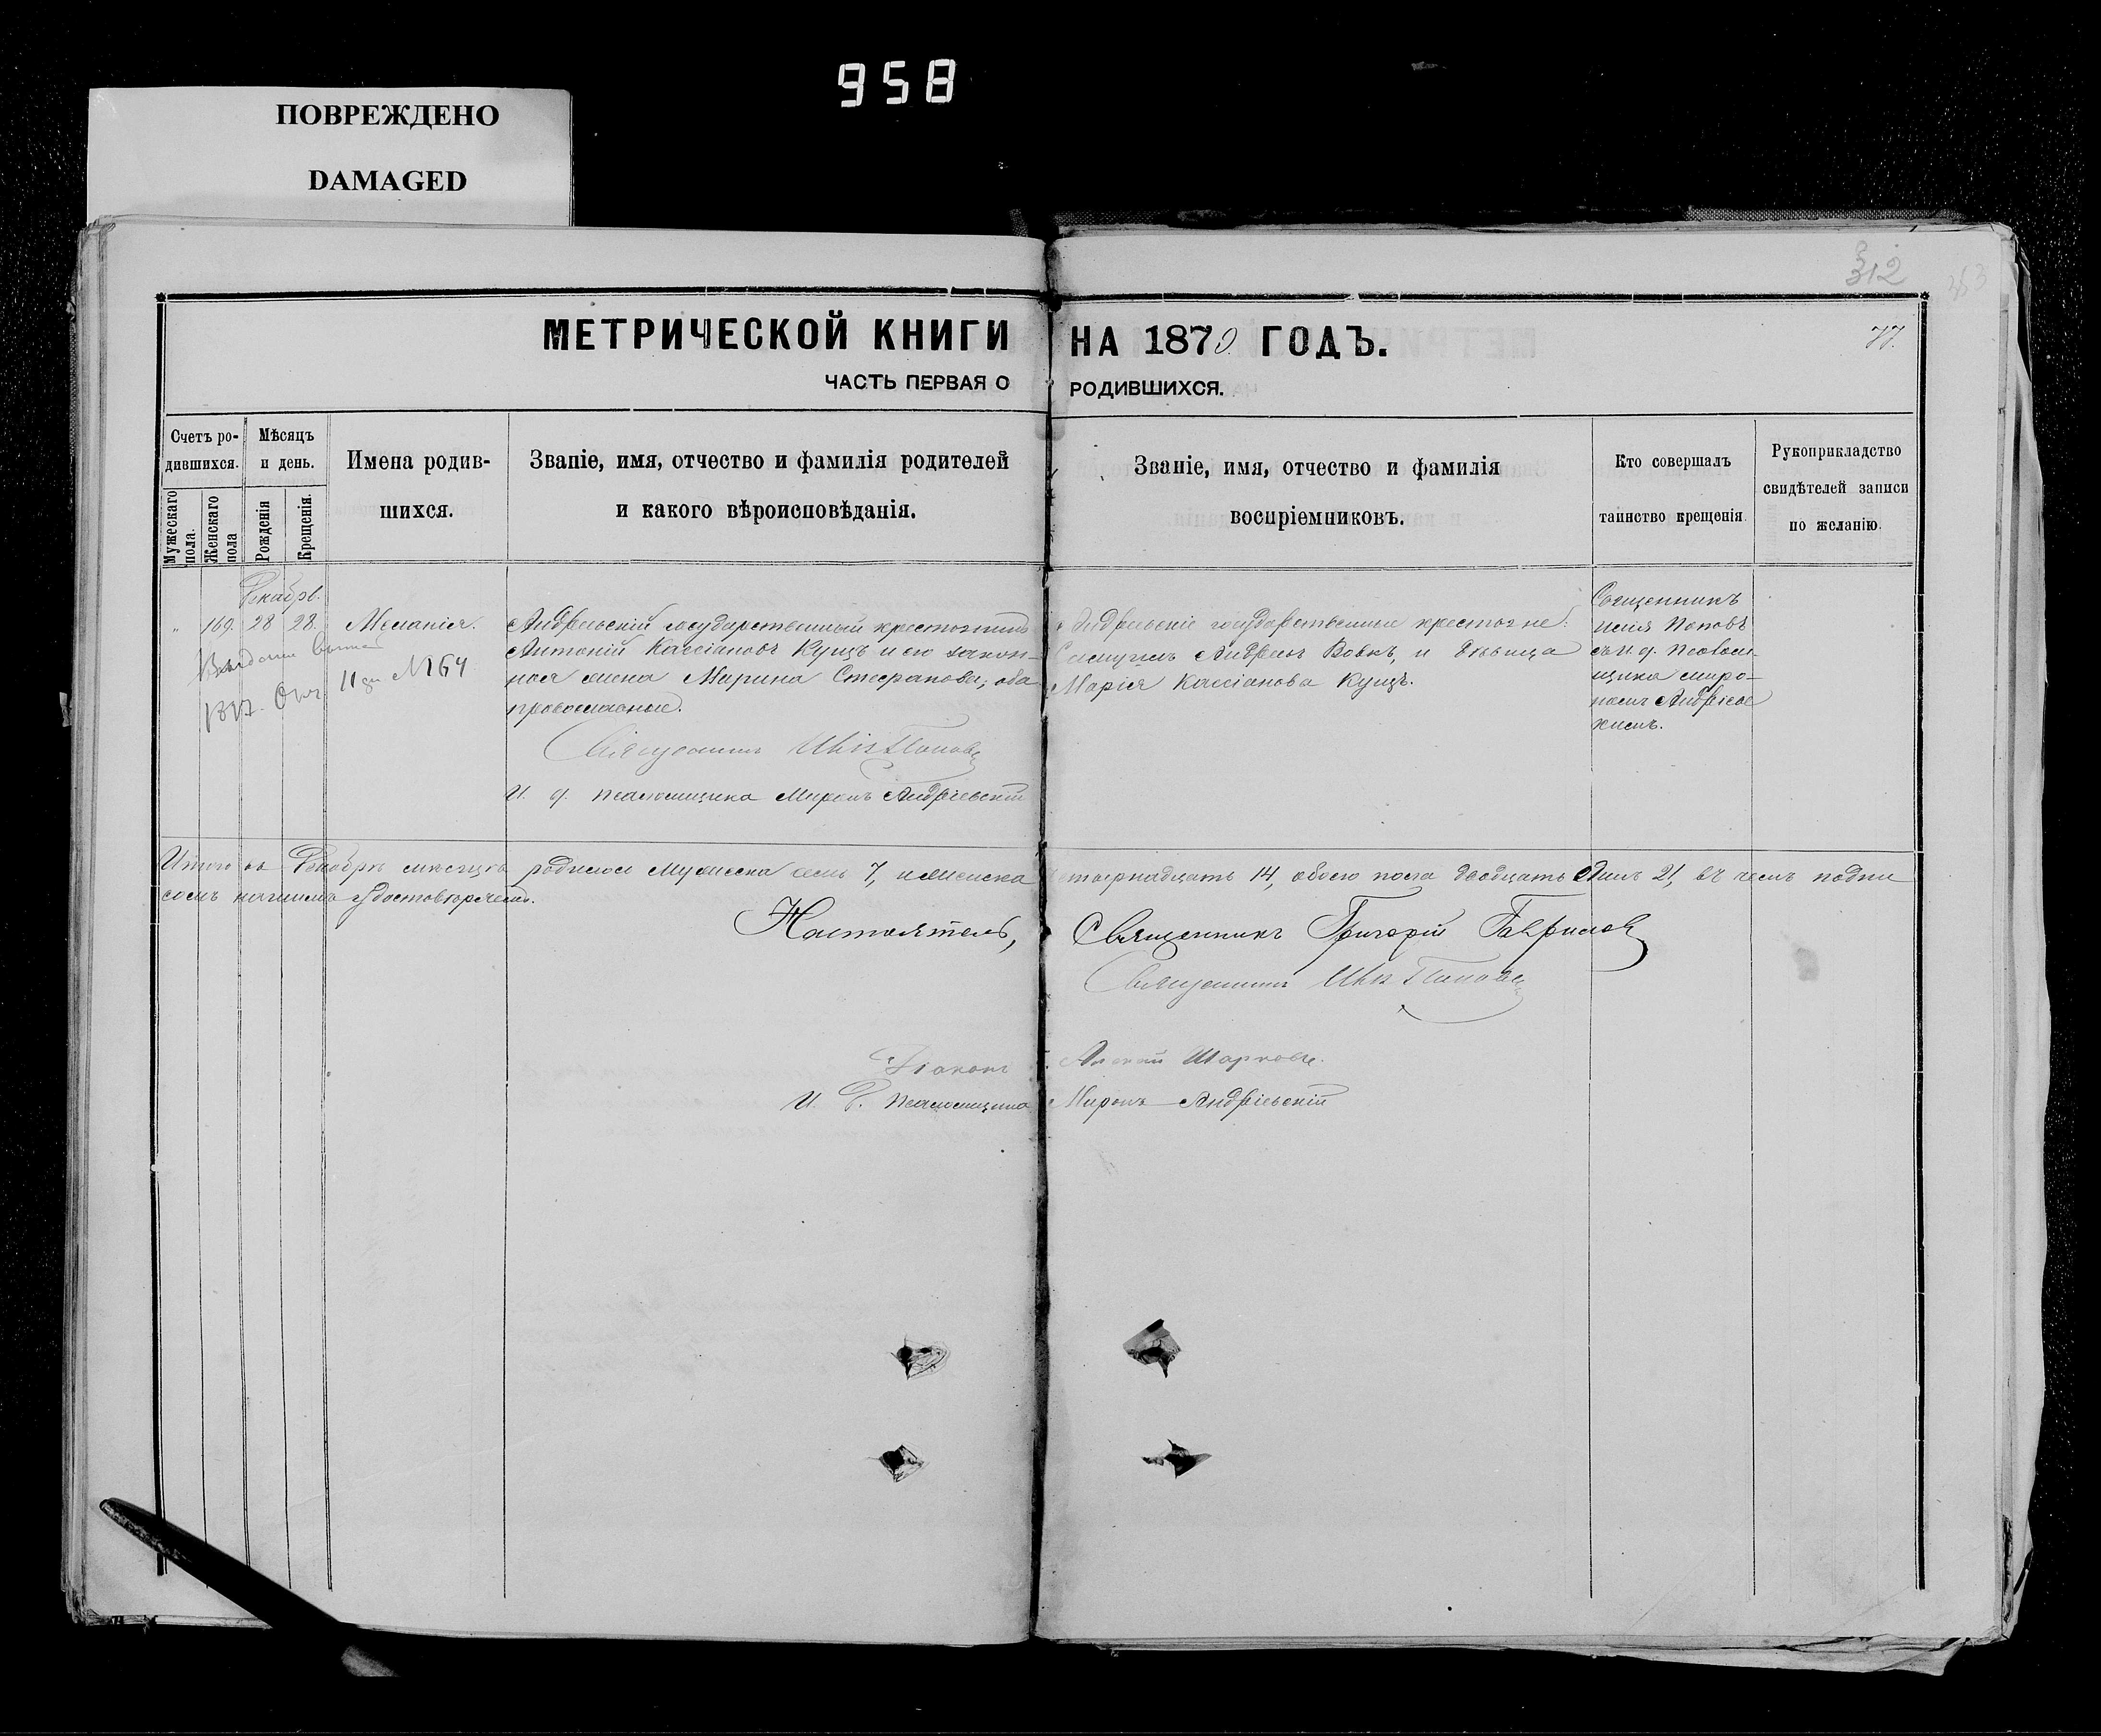 958
ПОВРЕЖДЕНО
DAMAGED
312
МЕТРИЧЕСКОЙ КНИГИ НА 1870 ГОДЪ.
77.
ЧАСТЬ ПЕРВАЯ О РОДИВШИХСЯ.
Счетъ родившихся.
Мужескаго пола.
Женскаго пола
Мѣсяцъ и день.
Рожденія
Крещенія.
Имена родившихся.
Званіе, имя, отчество и фамилія родителей
и какого вѣроисповѣданія.
Званіе, имя, отчество и фамилія
воспріемниковъ.
Кто совершалъ
таинство крещенія.
Рукоприкладство
свидѣтелей записи
по желанію.
Декабрь.
169. 28 28. Меланія.
11 дн № 164
Андреевскій государственный крестьянинъ
Антоній Кассіановъ Кущъ и его закон-
ная жена Марина Стефанова; оба
православные.
Священникъ Илія Поповъ
И. д. псаломщика Миронъ Андріевскій
Андреевскіе государственные крестьяне:
Самуилъ Андреевъ Вовкъ, и дѣвица
Марія Кассіанова Кущъ.
Священникъ
Илія Поповъ
съ и. д. псалом-
щика Миро-
номъ Андріев-
скимъ.
Итого въ Декабрѣ мѣсяцѣ родилося мужеска семь 7, и женска четырнадцать 14, обоего пола двадцать одинъ 21, въ чемъ подпи
сомъ нашимъ удостовѣряемъ.
Настоятель, Священникъ Григорій Гавриловъ
Священникъ Илія Поповъ
Діаконъ
И. д. псаломщика Миронъ Андріевскій